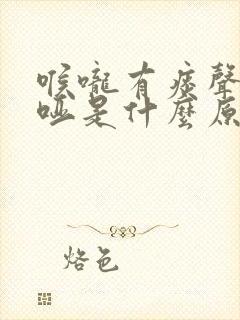 喉嚨有痰聲
啞是什麼原
烙色